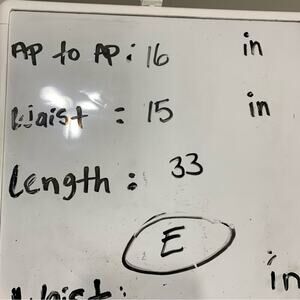 AP to AP: 16 in
Waist : 15 in
Length : 33
E
Waist: in